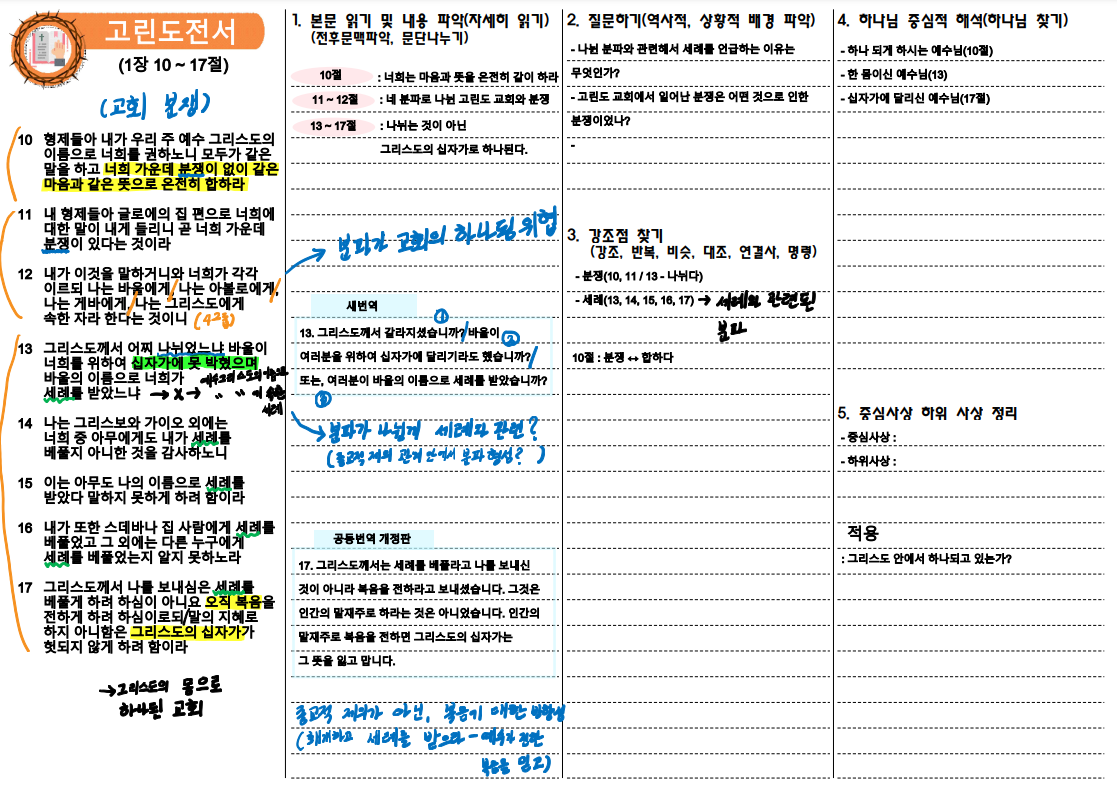 고린도전서
(1장 10 ~ 17절)
(교회 분쟁)
10 형제들아 내가 우리 주 예수 그리스도의
이름으로 너희를 권하노니 모두가 같은
말을 하고 너희 가운데 분쟁이 없이 같은
마음과 같은 뜻으로 온전히 합하라
11 내 형제들아 글로에의 집 편으로 너희에
대한 말이 내게 들리니 곧 너희 가운데
분쟁이 있다는 것이라
12 내가 이것을 말하거니와 너희가 각각
이르되 나는 바울에게, 나는 아볼로에게,
나는 게바에게, 나는 그리스도에게
속한 자라 한다는 것이니 (4그룹)
13 그리스도께서 어찌 나뉘었느냐 바울이
너희를 위하여 십자가에 못 박혔으며
바울의 이름으로 너희가
세례를 받았느냐 → X →
세례
14 나는 그리스보와 가이오 외에는
너희 중 아무에게도 내가 세례를
베풀지 아니한 것을 감사하노니
15 이는 아무도 나의 이름으로 세례를
받았다 말하지 못하게 하려 함이라
16 내가 또한 스데바나 집 사람에게 세례를
베풀었고 그 외에는 다른 누구에게
세례를 베풀었는지 알지 못하노라
17 그리스도께서 나를 보내심은 세례를
베풀게 하려 하심이 아니요 오직 복음을
전하게 하려 하심이로되/말의 지혜로
하지 아니함은 그리스도의 십자가가
헛되지 않게 하려 함이라
→그리스도의 몸으로
하나된 교회
1. 본문 읽기 및 내용 파악(자세히 읽기)
(전후문맥파악, 문단나누기)
10절 : 너희는 마음과 뜻을 온전히 같이 하라
11 ~ 12절 : 네 분파로 나뉜 고린도 교회와 분쟁
13 ~ 17절 : 나뉘는 것이 아닌
그리스도의 십자가로 하나된다.
→ 분파가 교회의 하나됨 위협
새번역
①
13. 그리스도께서 갈라지셨습니까?/바울이
②
여러분을 위하여 십자가에 달리기라도 했습니까?/
또는, 여러분이 바울의 이름으로 세례를 받았습니까?
③
→분파가 나뉜게 세례와 관련?
(종교적 제의 관계 안에서 분파 형성? )
공동번역 개정판
17. 그리스도께서는 세례를 베풀라고 나를 보내신
것이 아니라 복음을 전하라고 보내셨습니다. 그것은
인간의 말재주로 하라는 것은 아니었습니다. 인간의
말재주로 복음을 전하면 그리스도의 십자가는
그 뜻을 잃고 맙니다.
종교적 제의가 아닌, 복음기 대한
(회개하고 세례를 받으라 - 예수가 전한
복음을 믿고)
2. 질문하기(역사적, 상황적 배경 파악)
- 나뉜 분파와 관련해서 세례를 언급하는 이유는
무엇인가?
- 고린도 교회에서 일어난 분쟁은 어떤 것으로 인한
분쟁이었나?
-
3. 강조점 찾기
(강조, 반복, 비슷, 대조, 연결사, 명령)
- 분쟁(10, 11 / 13 - 나뉘다)
- 세례(13, 14, 15, 16, 17) → 세례와 관련된
분파
10절 : 분쟁 ↔ 합하다
4. 하나님 중심적 해석(하나님 찾기)
- 하나 되게 하시는 예수님(10절)
- 한 몸이신 예수님(13)
- 십자가에 달리신 예수님(17절)
5. 중심사상 하위 사상 정리
- 중심사상 :
- 하위사상 :
적용
: 그리스도 안에서 하나되고 있는가?